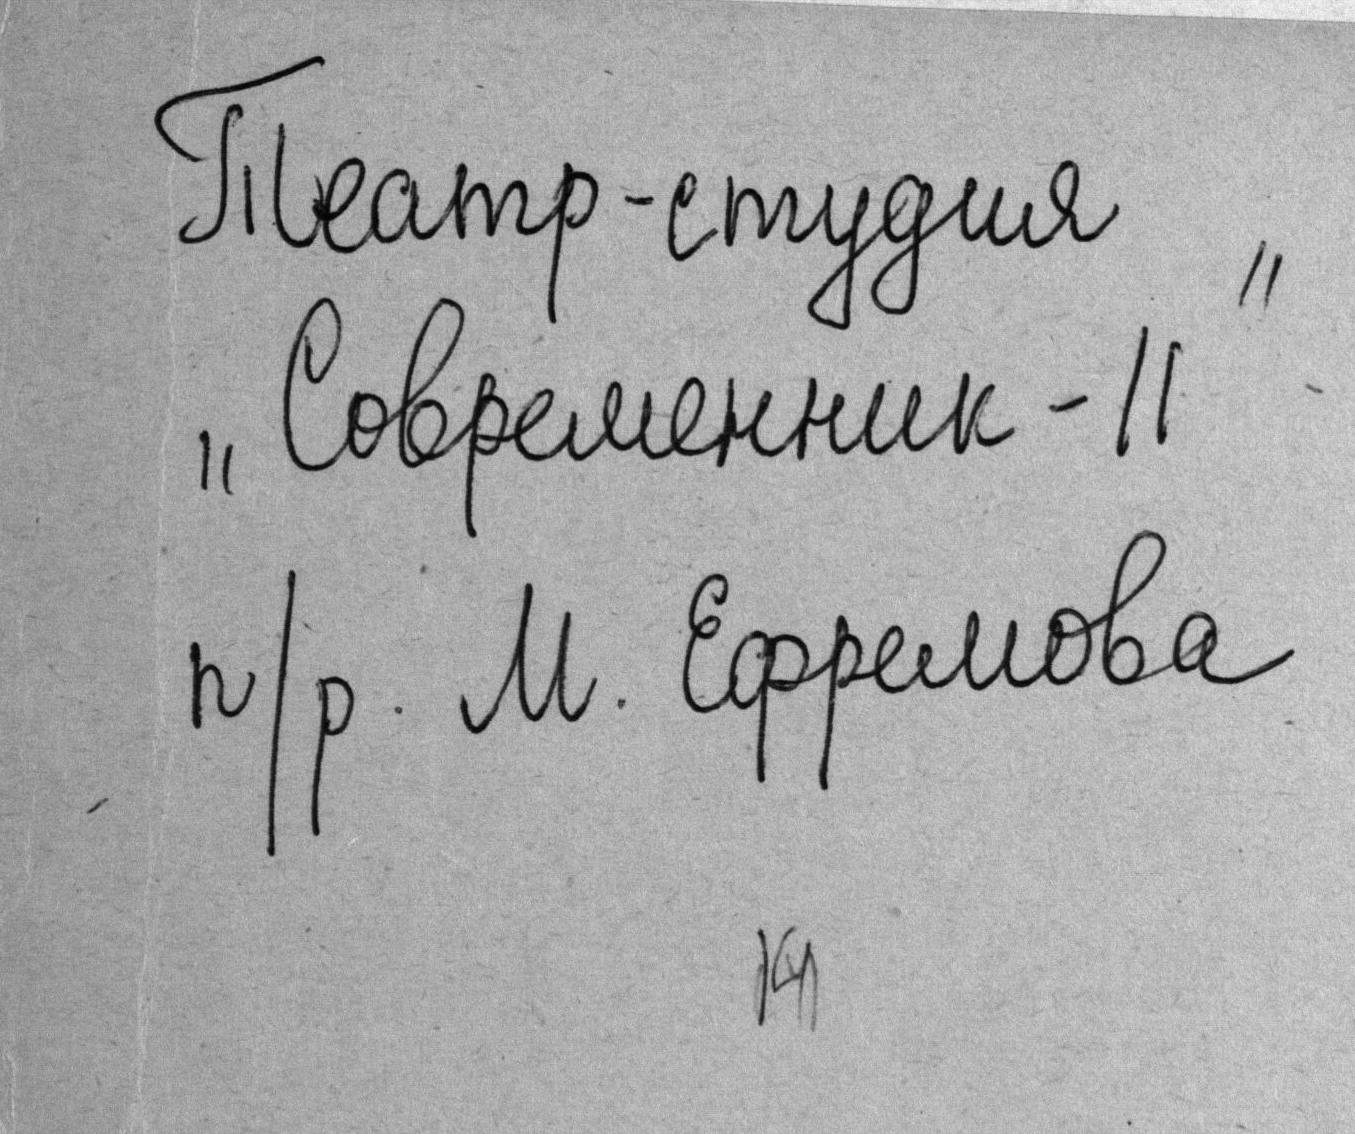 Театр-студия
„Современник-II”
п/р. М. Ефремова